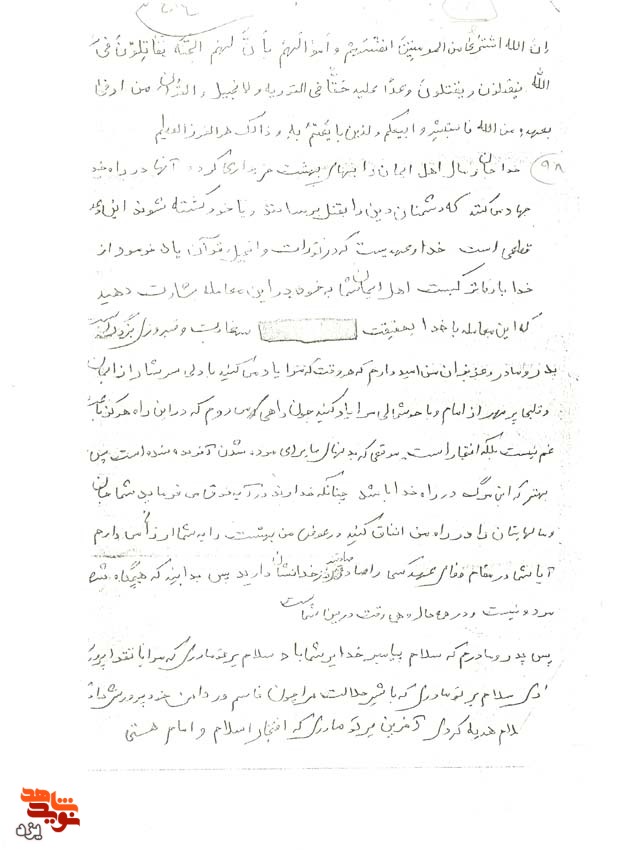 إن الله اشتری من المومنین انفسهم و اموالهم بأن لهم الجنة یقاتلون فی
الله فیقتلون و یقتلون وعدا علیه حقا فی التوریه و لانجیل و القرآن من اوفی
بعهده من الله فاستبشرو ابیعکم ولذین بایعتم به و ذالک هو الفوز العظیم
۹۸ خدا جان و مال اهل ایمان را بهای بهشت خریداری کرده آنها در راه خدا
جهاد می‌کنند که دشمنان دین را بقتل برسانند و یا خود کشته شوند این
قطعی است خدا و عهدیست که در تورات و انجیل و قرآن یاد فرمود از
خدا با وفاتر کیست اهل ایمان شما به خود در این معامله بشارت دهید
که این معامله با خدا بحقیقت سعادت و فیروزی بزرگ است
پدر و مادر و عزیزان من امید وارم که هر وقت که مرا یاد می کنید با دلی سرشار از ایمان
و قلبی پر مهر از امام و با خوشحالی مرا یاد کنید چون راهی که می روم که در این راه هرگز
غم نیست بلکه افتخار است موقعی که بدنهای ما برای مردن شدن آفریده شده است پس
بهتر که این مرگ در راه خدا باشد چنانکه خداوند در آیه فوق می فرماید شما جان
و مالهایتان را در راه من انفاق کنید در عوض من بهشت را به شما ارزانی می دارم
آیا شما در مقام وفای عهد کسی را صادق تر از خدا نشان دارید پس بدانید که هیچگاه شهید
مرده نیست و در همه حال و هر وقت در بین شماست
پس پدر و مادرم که سلام پیامبر خدا بر شما باد سلام بر تو مادری که مرا با تقوا
سلام بر تو مادری که با شیر حلالت مرا چون قاسم در دامن خود پرورش
هدیه کردی آفرین بر تو مادری که افتخار اسلام و امام هستی
نوید شاهد
یزد